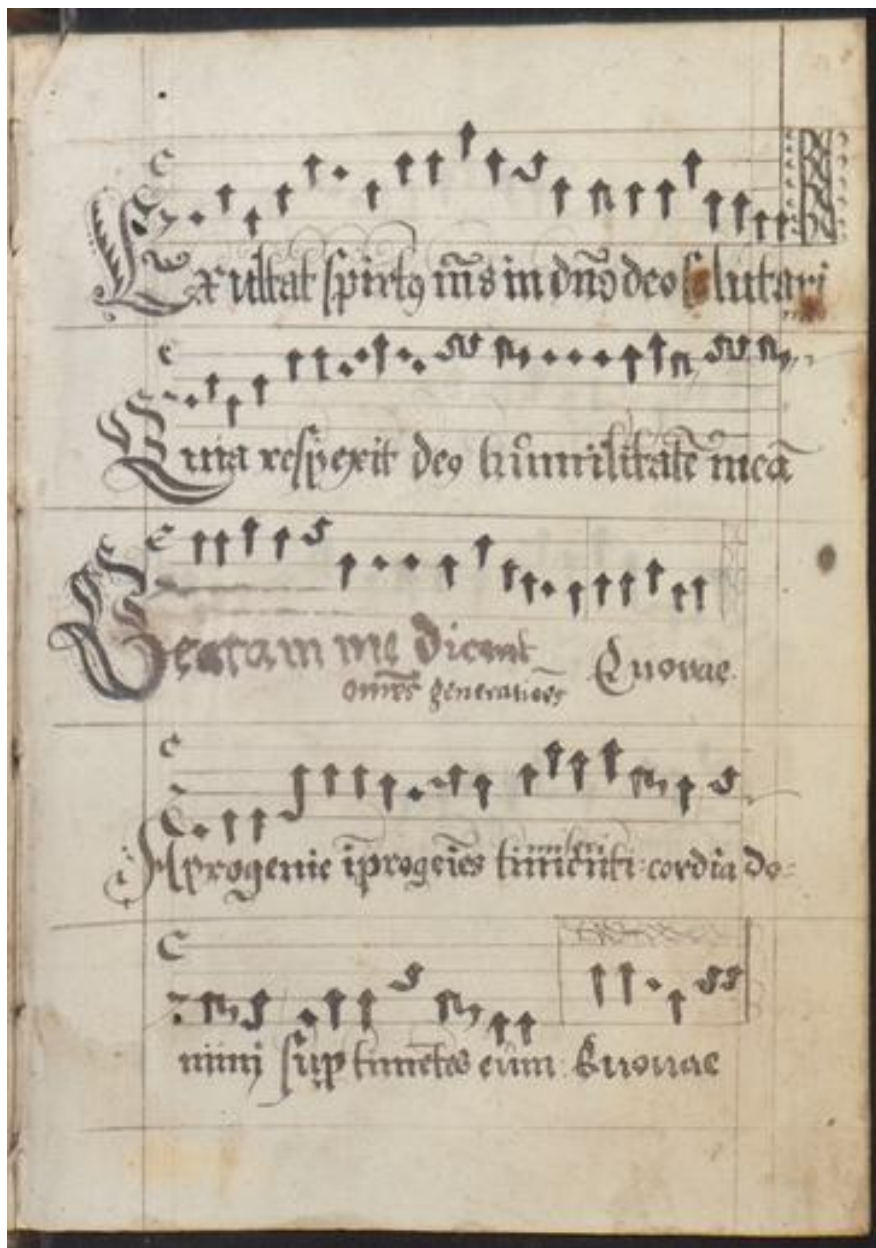 Exultat spirit9 m̄s in dn̄o deo salutari
Quia respexit de9 humilitatē meā
Beatam me dicent Euovae
omēs generationēs
A progenie ī progeīes timēnti cordia do=
miseri
minj sup timētes eum Euouae